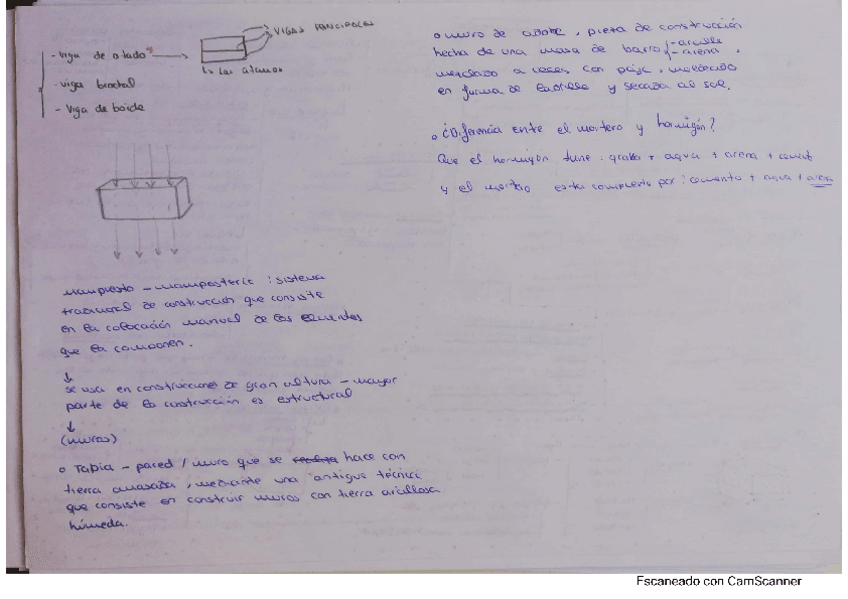 - viga de atado
- viga brochal
- viga de borde
VIGAS PRINCIPALES
mampuesto - mampostería : sistema
tradicional de construcción que consiste
en la colocación manual de los elementos
que la componen.
↓
se usa en construcciones de gran altura - mayor
parte de la construcción es estructural
↓
(muros)
o Tapia - pared / muro que se hace con
tierra amasada, mediante una antigua técnica
que consiste en construir muros con tierra arcillosa
húmeda.
o muro de adobe, pieza de construcción
hecha de una masa de barro { - arcilla
- arena ,
mezclado a veces con paja, moldeado
en forma de ladrillo y secada al sol.
o ¿Diferencia entre el mortero y hormigón?
Que el hormigón tiene : grava + agua + arena + cemento
y el mortero está compuesto por : cemento + agua + arena
Escaneado con CamScanner